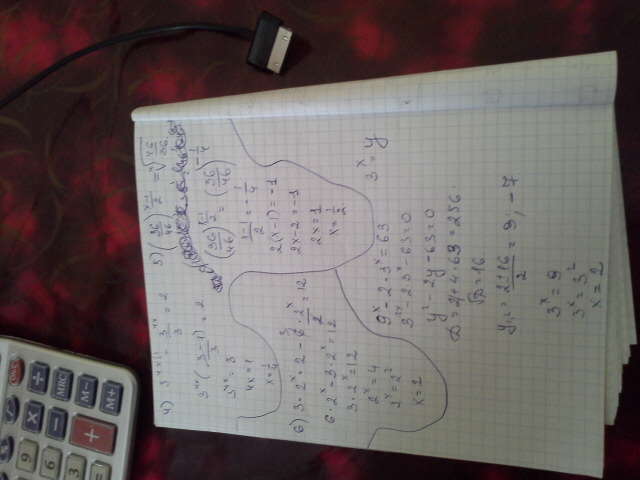 4) 3^{4x+1} - \frac{3^{4x}}{3} = 2
3^{4x}(\frac{3-1}{3}) = 2
3^{4x} = 3
4x = 1
x = \frac{1}{4}
5) (\frac{36}{46})^{\frac{x-1}{2}} = \sqrt[4]{\frac{46}{36}}
(\frac{36}{46})^{\frac{x-1}{2}} = (\frac{36}{46})^{-\frac{1}{4}}
\frac{x-1}{2} = -\frac{1}{4}
2(x-1) = -1
2x-2 = -1
2x = 1
x = \frac{1}{2}
6) 3 \cdot 2^x \cdot 2 - \frac{6 \cdot 2^x}{2} = 12
6 \cdot 2^x - 3 \cdot 2^x = 12
3 \cdot 2^x = 12
2^x = 4
x = 2
9^x - 2 \cdot 3^x = 63
3^x = y
3^{2x} - 2 \cdot 3^x - 63 = 0
y^2 - 2y - 63 = 0
D = 4 + 4 \cdot 63 = 256
\sqrt{D} = 16
y_{1,2} = \frac{2 \pm 16}{2} = 9; -7
3^x = 9
3^x = 3^2
x = 2
MRC
M-
M+
÷
×
-
+
9
6
3
=